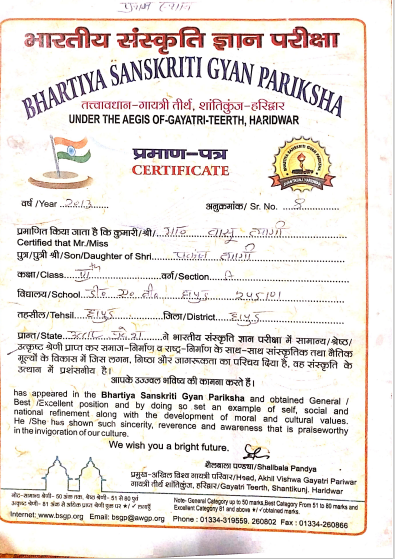 प्रथम स्थान
भारतीय संस्कृति ज्ञान परीक्षा
BHARTIYA SANSKRITI GYAN PARIKSHA
तत्त्वावधान-गायत्री तीर्थ, शांतिकुंज-हरिद्वार
UNDER THE AEGIS OF-GAYATRI-TEERTH, HARIDWAR
प्रमाण-पत्र
CERTIFICATE
वर्ष /Year 2013 अनुक्रमांक/ Sr. No.
प्रमाणित किया जाता है कि कुमारी/श्री/ वासु त्यागी
Certified that Mr./Miss
पुत्र/पुत्री श्री/Son/Daughter of Shri त्यागी
कक्षा/Class वर्ग/Section
विद्यालय/School हापुड़ 245101
तहसील/Tehsil हापुड़ जिला/District हापुड़
प्रान्त/State उत्तर प्रदेश ने भारतीय संस्कृति ज्ञान परीक्षा में सामान्य/श्रेष्ठ/
उत्कृष्ट श्रेणी प्राप्त कर समाज-निर्माण व राष्ट्र-निर्माण के साथ-साथ सांस्कृतिक तथा नैतिक
मूल्यों के विकास में जिस लगन, निष्ठा और जागरूकता का परिचय दिया है, वह संस्कृति के
उत्थान में प्रशंसनीय है।
आपके उज्ज्वल भविष्य की कामना करते हैं।
has appeared in the Bhartiya Sanskriti Gyan Pariksha and obtained General /
Best /Excellent position and by doing so set an example of self, social and
national refinement along with the development of moral and cultural values.
He /She has shown such sincerity, reverence and awareness that is praiseworthy
in the invigoration of our culture.
We wish you a bright future.
शैलबाला पण्ड्या/Shailbala Pandya
प्रमुख-अखिल विश्व गायत्री परिवार/Head, Akhil Vishwa Gayatri Pariwar
गायत्री तीर्थ शांतिकुंज, हरिद्वार/Gayatri Teerth, Shantikunj, Haridwar
नोट-सामान्य श्रेणी- 50 अंक तक, श्रेष्ठ श्रेणी- 51 से 80 पूर्व
Note- General Category up to 50 marks,Best Category From 51 to 80 marks and
Excellent Category 81 and above ★/✓obtained marks.
Internet: www.bsgp.org Email: bsgp@awgp.org Phone : 01334-319559, 260802 Fax : 01334-260866